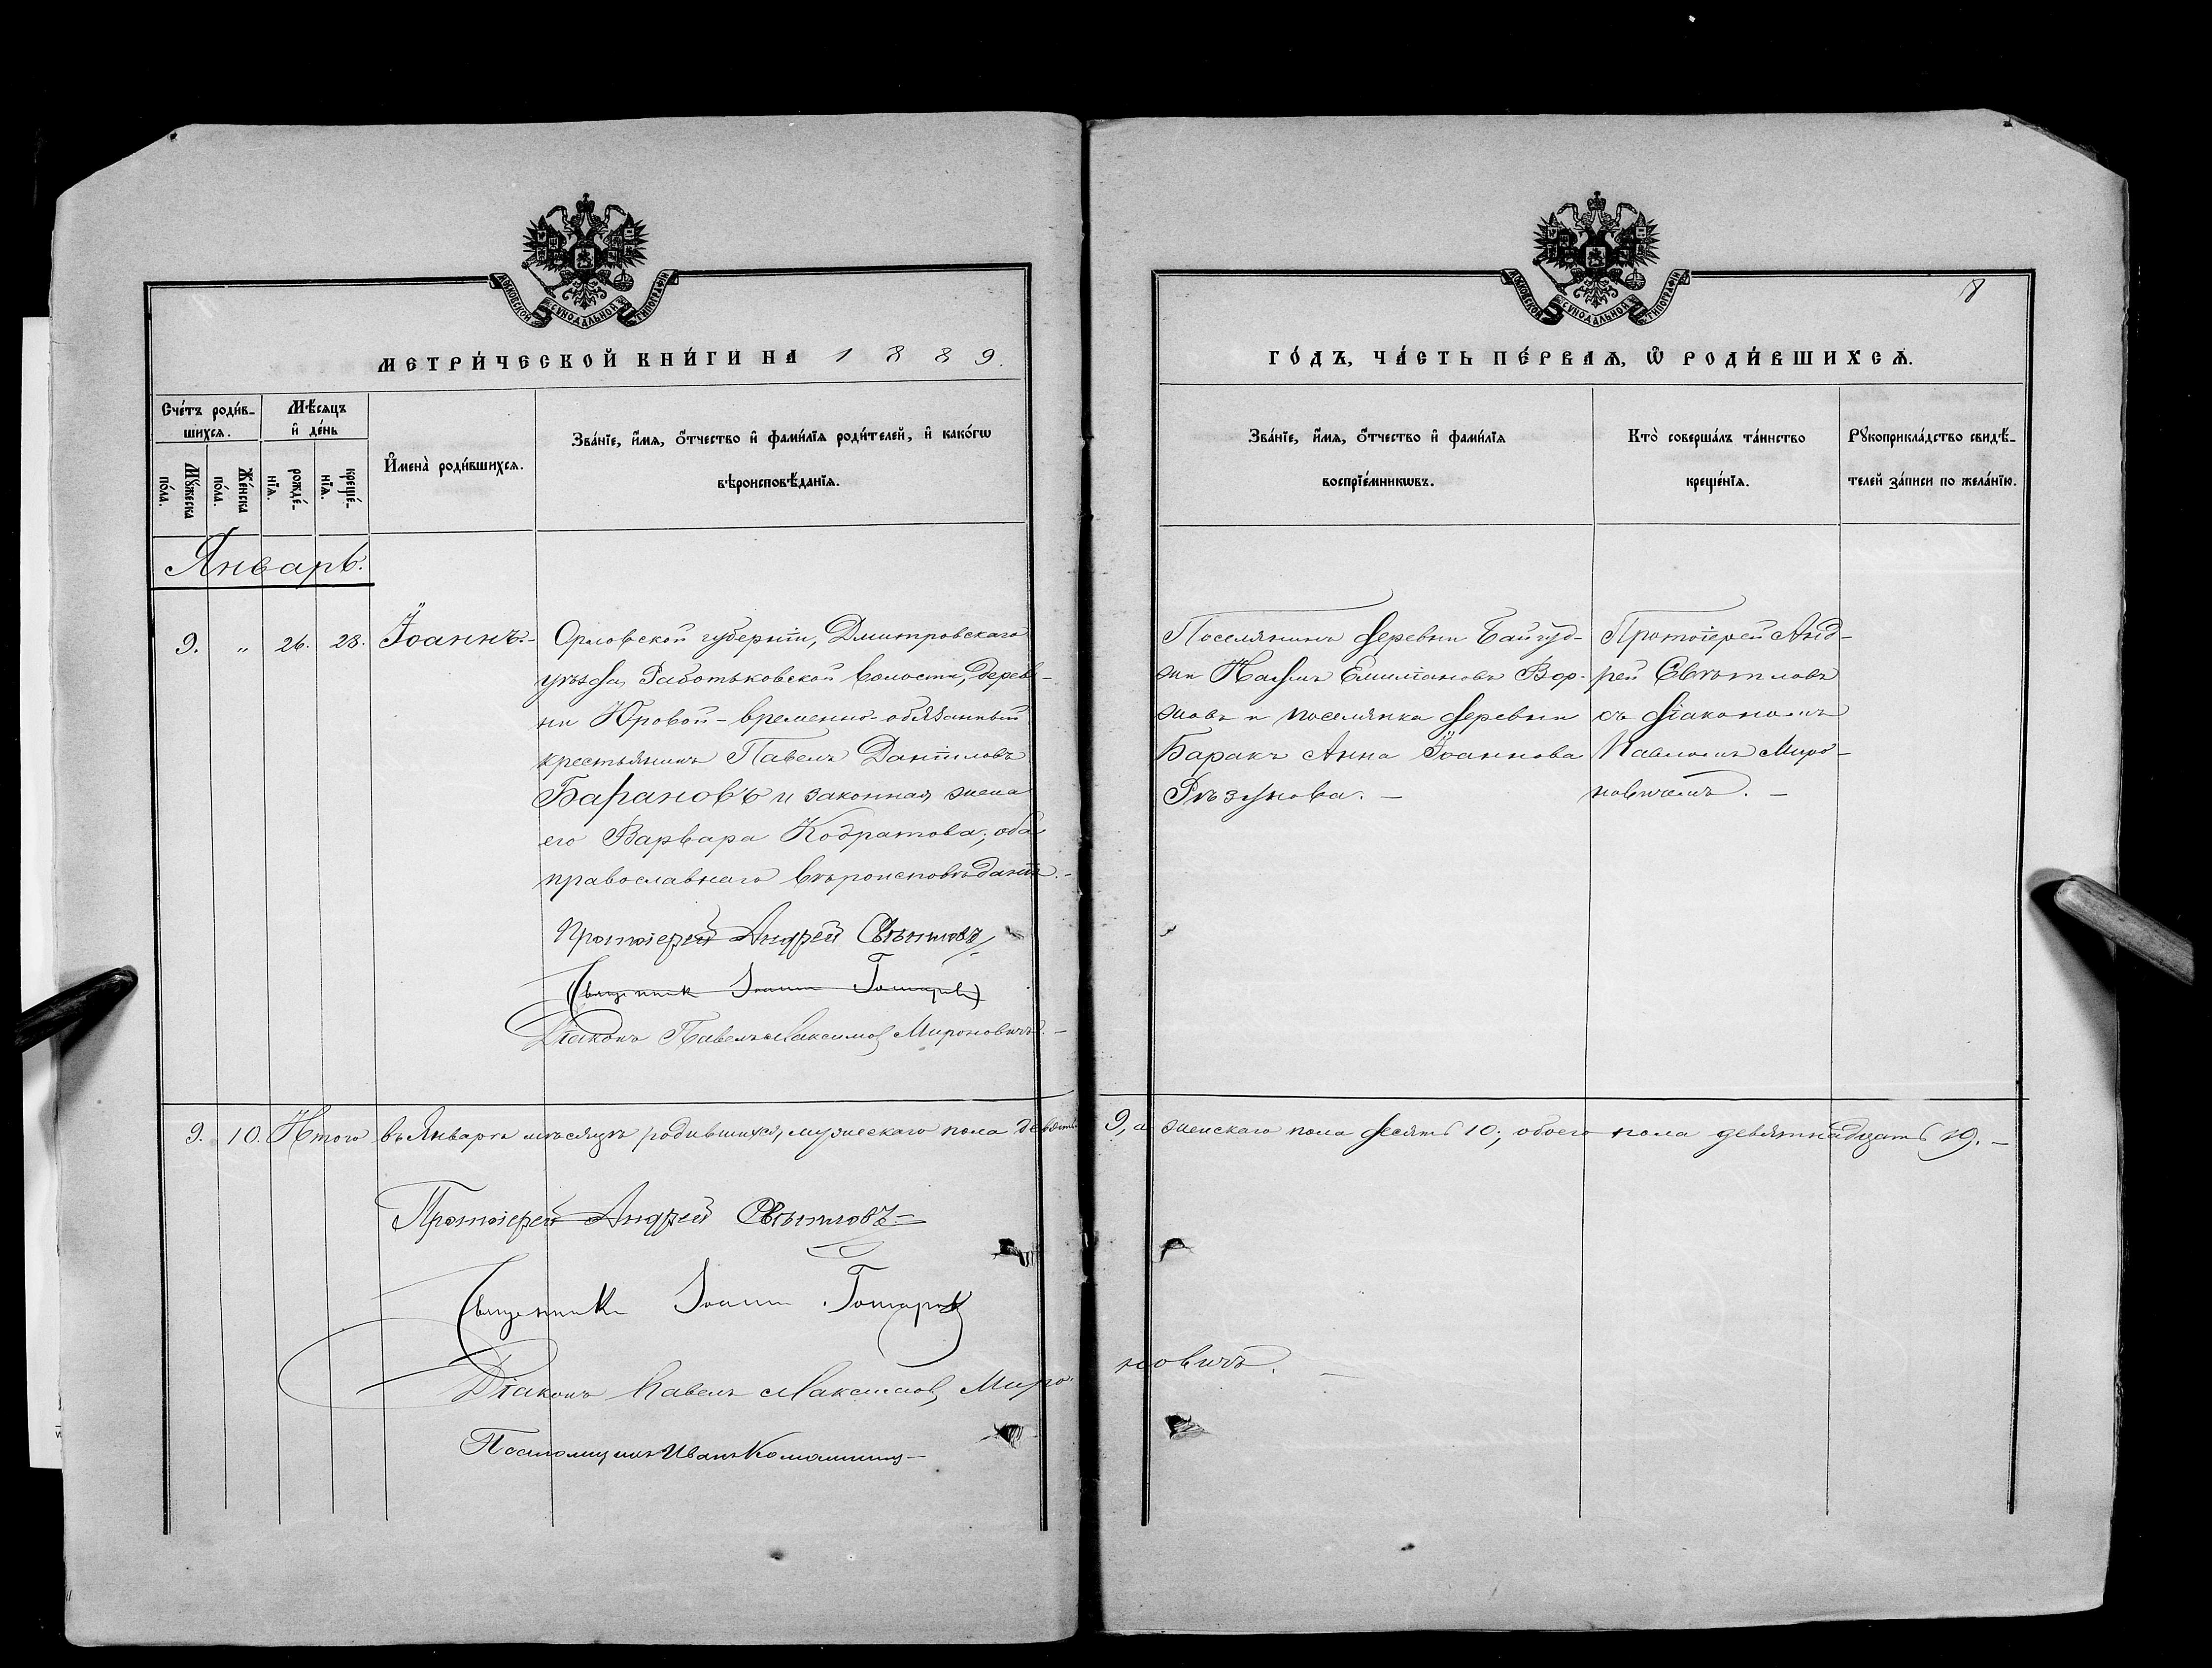 МОСКОВСКОЙ СУНОДАЛЬНОЙ ТИПОГРАФІИ
МЕТРИ́ЧЕСКОЙ КНИ́ГИ НА 1889.
Сче́тъ роди́в-
шихсѧ.
Мѣ́сѧцъ
и҆ де́нь
Мꙋ́жеска
по́ла.
Же́нска
по́ла.
рожде́-
нїѧ.
креще́-
нїѧ.
И҆мена̀ роди́вшихсѧ.
Зва́нїе, и҆́мѧ, ѻ҆́тчество и҆ фами́лїѧ роди́телей, и҆ како́гѡ
вѣроисповѣ́данїѧ.
Январь.
9. " 26. 28. Іоаннъ.-
Орловской губерніи, Дмитровскаго
уѣзда, Работьковской волости, дерев-
ни Юровой - временно-обязанный
крестьянинъ Павелъ Даніиловъ
Барановъ и законная жена
его Варвара Кодратова; оба
православнаго вѣроисповѣданія.-
Протоіерей Андрей Свѣтловъ
Священник Іоанн
Діаконъ Павелъ Максимов Мироновичъ.-
9. 10. Итого въ Январѣ мѣсяцѣ родившихся, мужескаго пола девять
Протоіерей Андрей Свѣтловъ
Священник Іоанн
Діаконъ Павелъ Максимов Миро-
Псаломщикъ Иванъ
МОСКОВСКОЙ СУНОДАЛЬНОЙ ТИПОГРАФІИ
8
ГО́ДЪ, ЧА́СТЬ ПЕ́РВАѦ, Ѡ҆ РОДИ́ВШИХСѦ.
Зва́нїе, и҆́мѧ, ѻ҆́тчество и҆ фами́лїѧ
воспрїе́мникѡвъ.
Кто̀ соверша́лъ та́инство
креще́нїѧ.
Рꙋкоприкла́дство свидѣ́-
телей за́писи по жела́нїю.
Поселянинъ деревни Байгуд-
жи Наумъ Емиліановъ Вор-
жовъ и поселянка деревни
Баракъ Анна Іоаннова
Рѣзунова.-
Протоіерей Анд-
рей Свѣтловъ
съ діакономъ
Павломъ Миро-
новичемъ.-
9, и женскаго пола десять 10; обоего пола девятнадцать 19.-
новичъ.-